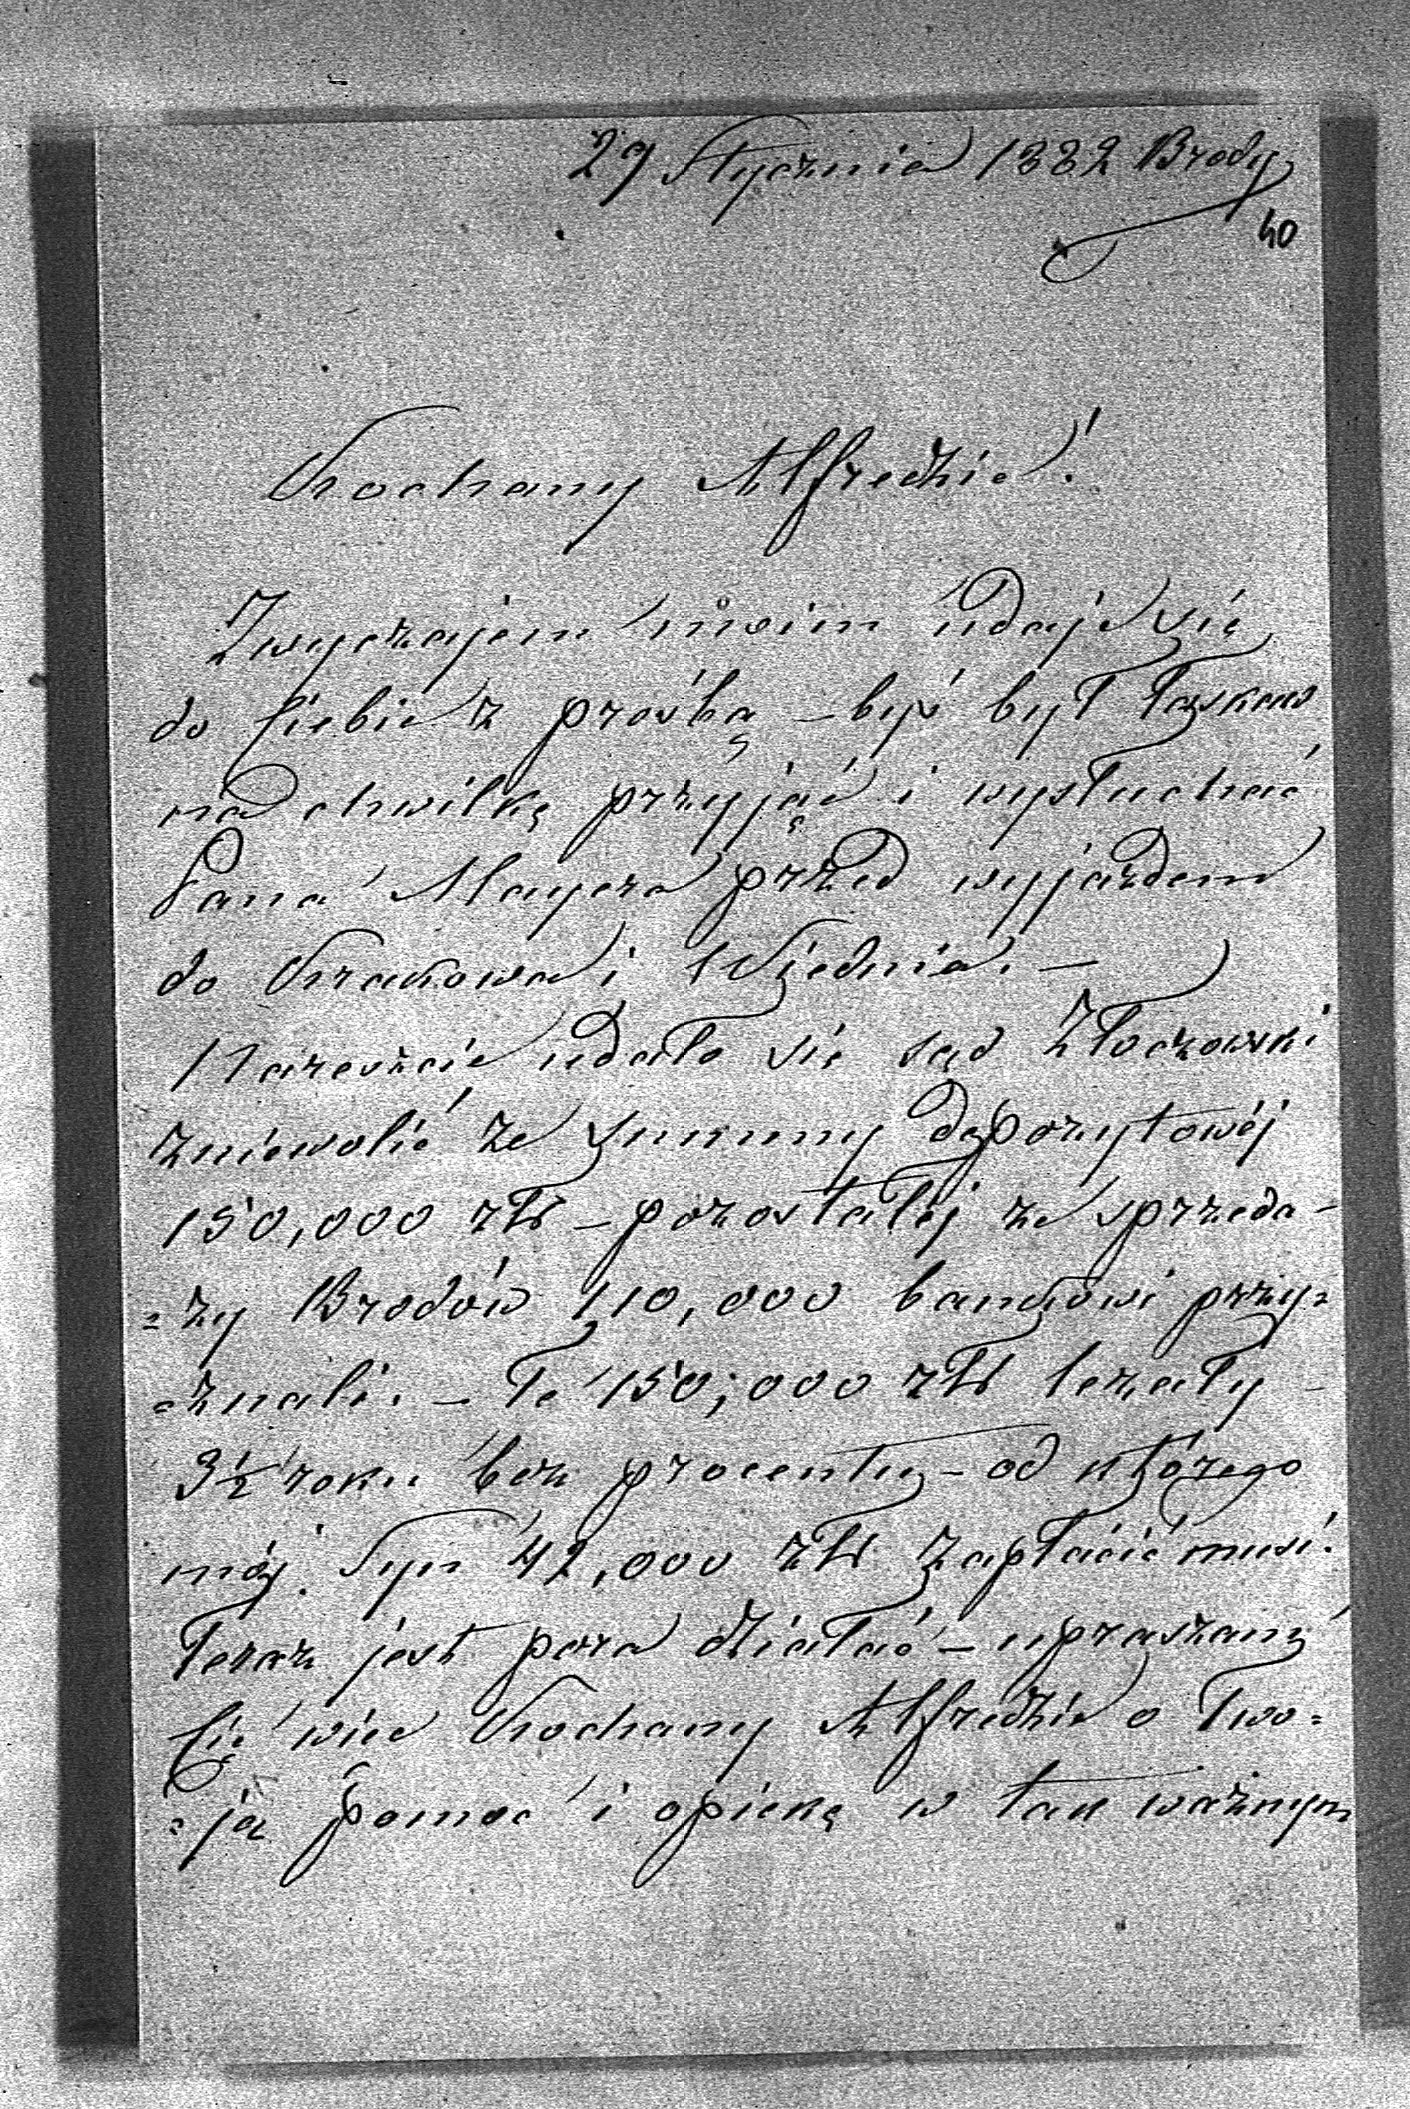 29 Stycznia 1882 Brody
40
Kochany Alfredzie!
Zwyczajem moim udaje się
do Ciebie z prośbą – byś był łaskaw
na chwilkę przyjąć i wysłuchać
Pana Mayera przed wyjazdem
do Krakowa i Wiednia. –
Nareszcie udało się sąd Złoczowski
zniewolić ze summy depozytowéj
150,000 złr – pozostałéj ze sprzeda-
=zy Brodów 110,000 bankowi przy=
=znali. – Te 150,000 złr leżały –
3½ roku bez procentu – od którego
mój Syn 42,000 złr zapłacić musi.
Teraz jest pora działać – upraszam
Cię więc Kochany Alfredzie o Two=
=ją pomoc i opiekę w tak ważnym